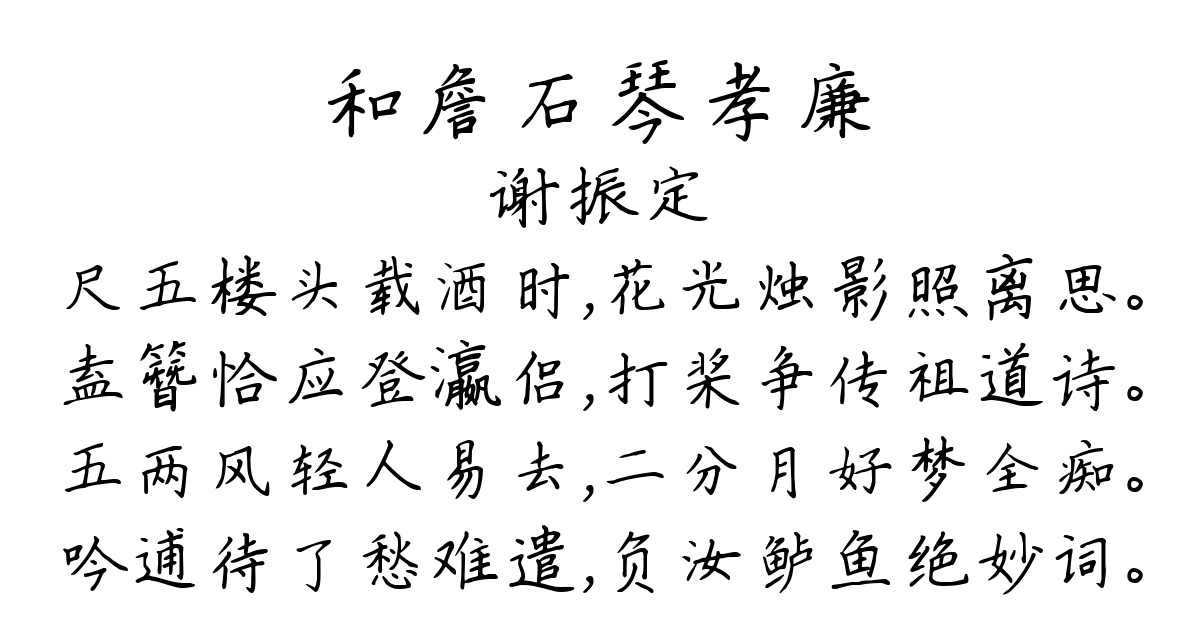 和詹石琴孝廉
谢振定
尺五楼头载酒时,花光烛影照离思。
盍簪恰应登瀛侣,打桨争传祖道诗。
五两风轻人易去,二分月好梦全痴。
吟逋待了愁难遣,负汝鲈鱼绝妙词。